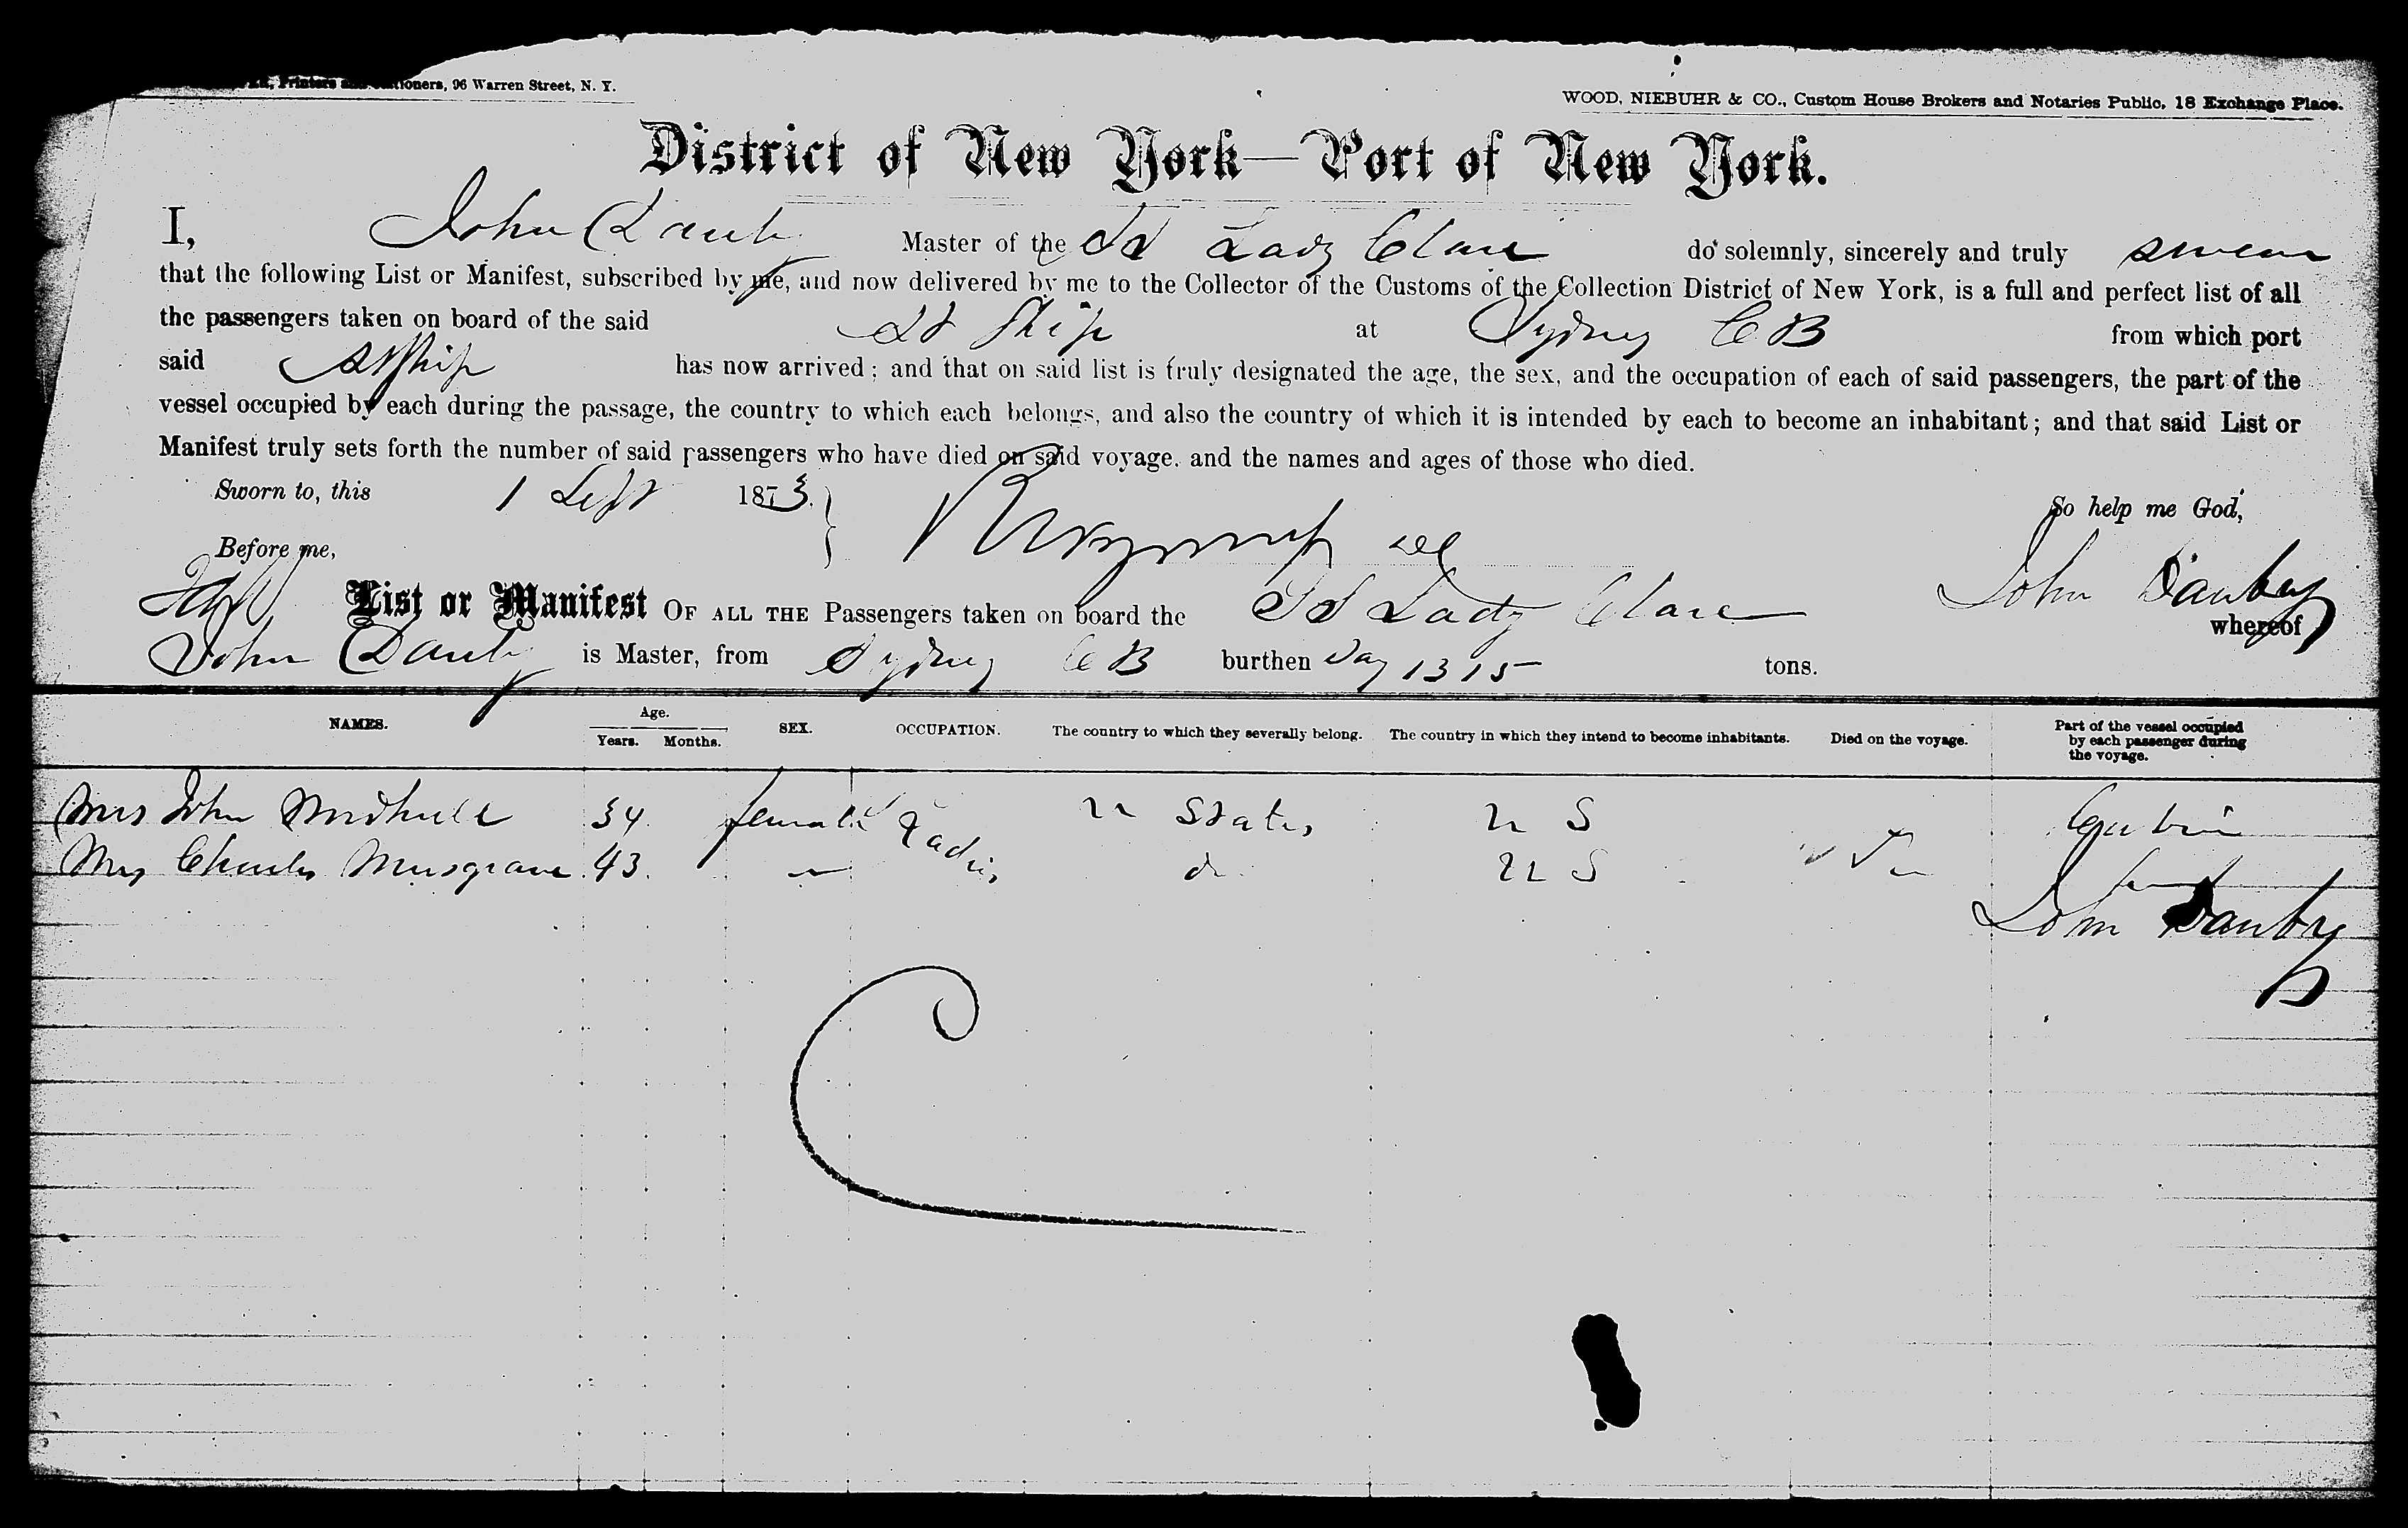 Printers and Stationers, 96 Warren Street, N. Y.
WOOD, NIEBUHR & CO., Custom House Brokers and Notaries Public, 18 Exchange Place.
District of New York—Port of New York.
I, John Danby Master of the SS Lady Clare do solemnly, sincerely and truly swear
that the following List or Manifest, subscribed by me, and now delivered by me to the Collector of the Customs of the Collection District of New York, is a full and perfect list of all
the passengers taken on board of the said St Ship at Sydney C B from which port
said St Ship has now arrived; and that on said list is truly designated the age, the sex, and the occupation of each of said passengers, the part of the
vessel occupied by each during the passage, the country to which each belongs, and also the country of which it is intended by each to become an inhabitant; and that said List or
Manifest truly sets forth the number of said passengers who have died on said voyage, and the names and ages of those who died.
Sworn to, this 1 Sept 1873. So help me God,
Before me,
John Danby
List or Manifest OF ALL THE Passengers taken on board the SS Lady Clare whereof
John Danby is Master, from Sydney C B burthen 1315 tons.
NAMES. Age. Years. Months. SEX. OCCUPATION. The country to which they severally belong. The country in which they intend to become inhabitants. Died on the voyage. Part of the vessel occupied by each passenger during the voyage.
Mrs John 34 female Ladies U States U S Cabin
Mrs Charles Musgrave 43. do U S
John Danby